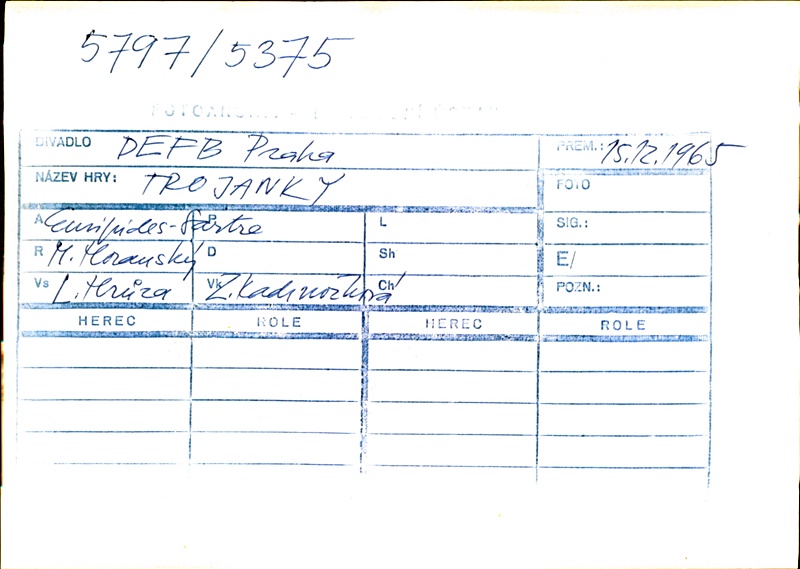 5797/5375
DIVADLO DEFB Praha PREM.: 15.12.1965
NÁZEV HRY: TROJANKY FOTO
A Euripides-Sartre P L SIG.:
R M. Horanský D Sh E/
Vs L. Hrůza Vk Z. Kadrnožková Ch POZN.:
HEREC ROLE HEREC ROLE